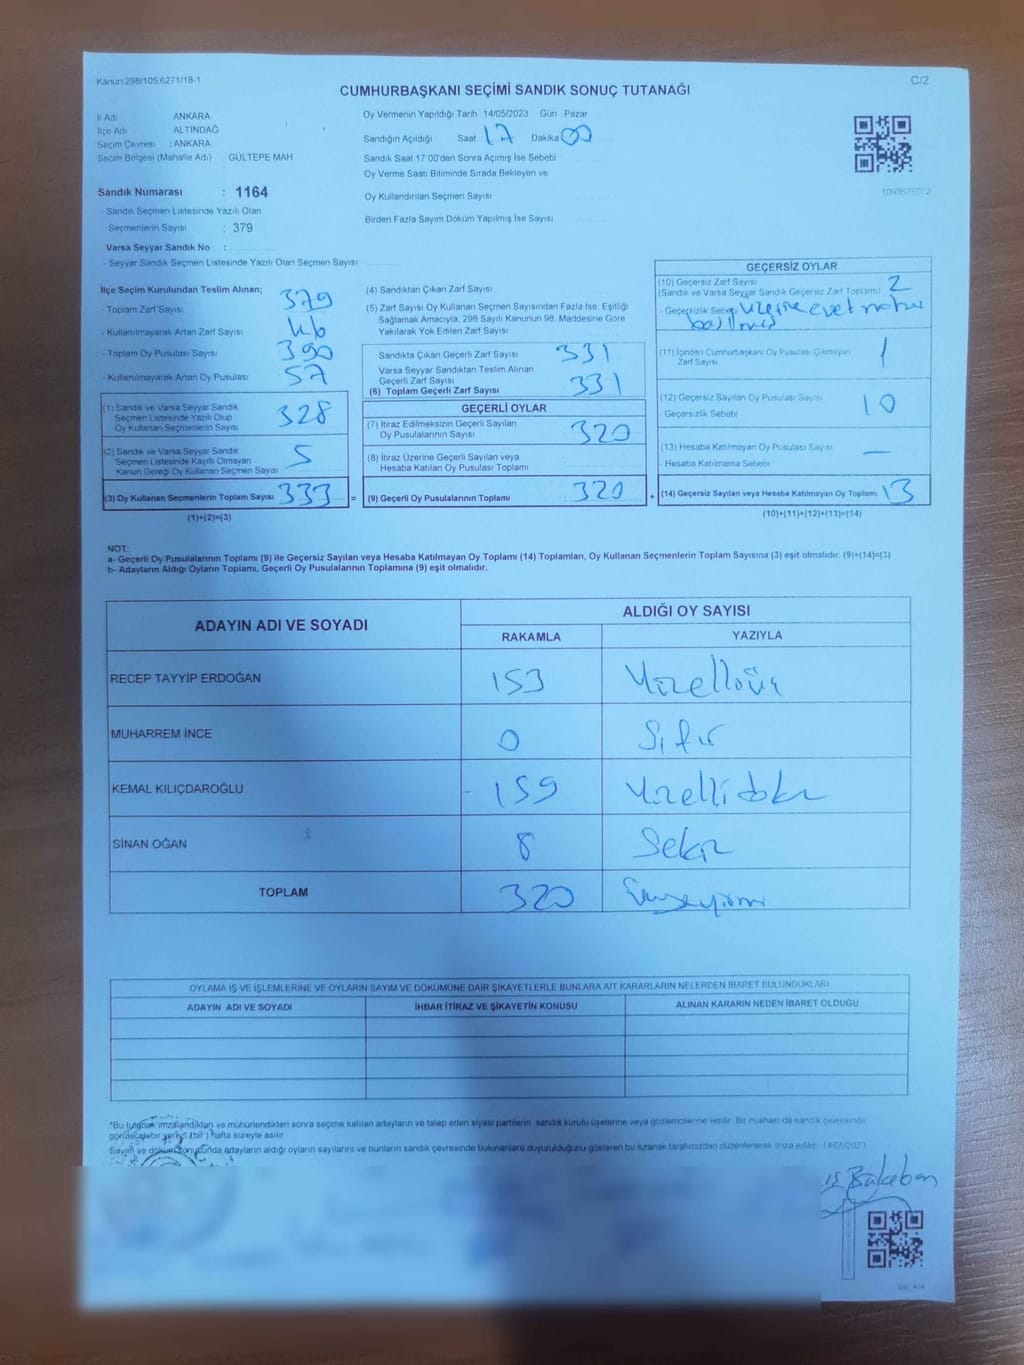 Kanun:298/105,6271/18-1
C/2
CUMHURBAŞKANI SEÇİMİ SANDIK SONUÇ TUTANAĞI
İl Adı ANKARA
İlçe Adı ALTINDAĞ
Seçim Çevresi : ANKARA
Seçim Bölgesi (Mahalle Adı) GÜLTEPE MAH
Sandık Numarası : 1164
- Sandık Seçmen Listesinde Yazılı Olan
Seçmenlerin Sayısı : 379
Varsa Seyyar Sandık No :
- Seyyar Sandık Seçmen Listesinde Yazılı Olan Seçmen Sayısı
Oy Vermenin Yapıldığı Tarih :14/05/2023 Gün : Pazar
Sandığın Açıldığı Saat 17 Dakika 00
Sandık Saat 17:00'den Sonra Açımış İse Sebebi
Oy Verme Saati Bitiminde Sırada Bekleyen ve
Oy Kullandırılan Seçmen Sayısı
Birden Fazla Sayım Döküm Yapılmış İse Sayısı
İlçe Seçim Kurulundan Teslim Alınan;
- Toplam Zarf Sayısı 379
- Kullanılmayarak Artan Zarf Sayısı 46
- Toplam Oy Pusulası Sayısı 390
- Kullanılmayarak Artan Oy Pusulası 57
(1) Sandık ve Varsa Seyyar Sandık
Seçmen Listesinde Yazılı Olup
Oy Kullanan Seçmenlerin Sayısı 328
(2) Sandık ve Varsa Seyyar Sandık
Seçmen Listesinde Kayıtlı Olmayan
Kanun Gereği Oy Kullanan Seçmen Sayısı 5
(3) Oy Kullanan Seçmenlerin Toplam Sayısı 333 =
(1)+(2)=(3)
(4) Sandıktan Çıkan Zarf Sayısı
(5) Zarf Sayısı Oy Kullanan Seçmen Sayısından Fazla İse, Eşitliği
Sağlamak Amacıyla, 298 Sayılı Kanunun 98. Maddesine Göre
Yakılarak Yok Edilen Zarf Sayısı
Sandıkta Çıkan Geçerli Zarf Sayısı 331
Varsa Seyyar Sandıktan Teslim Alınan
Geçerli Zarf Sayısı
(6) Toplam Geçerli Zarf Sayısı 331
GEÇERLİ OYLAR
(7) İtiraz Edilmeksizin Geçerli Sayılan
Oy Pusulalarının Sayısı 320
(8) İtiraz Üzerine Geçerli Sayılan veya
Hesaba Katılan Oy Pusulası Toplamı
(9) Geçerli Oy Pusulalarının Toplamı : 320 +
GEÇERSİZ OYLAR
(10) Geçersiz Zarf Sayısı
(Sandık ve Varsa Seyyar Sandık Geçersiz Zarf Toplamı) 2
- Geçersizlik Sebebi üzerine evet mührü
basılmış
(11) İçinden Cumhurbaşkanı Oy Pusulası Çıkmayan
Zarf Sayısı 1
(12) Geçersiz Sayılan Oy Pusulası Sayısı 10
- Geçersizlik Sebebi
(13) Hesaba Katılmayan Oy Pusulası Sayısı —
- Hesaba Katılmama Sebebi
(14) Geçersiz Sayılan veya Hesaba Katılmayan Oy Toplamı 13
(10)+(11)+(12)+(13)=(14)
NOT:
a- Geçerli Oy Pusulalarının Toplamı (9) ile Geçersiz Sayılan veya Hesaba Katılmayan Oy Toplamı (14) Toplamları, Oy Kullanan Seçmenlerin Toplam Sayısına (3) eşit olmalıdır. (9)+(14)=(3)
b- Adayların Aldığı Oyların Toplamı, Geçerli Oy Pusulalarının Toplamına (9) eşit olmalıdır.
ADAYIN ADI VE SOYADI
ALDIĞI OY SAYISI
RAKAMLA YAZIYLA
RECEP TAYYİP ERDOĞAN 153 Yüzelliüç
MUHARREM İNCE 0 Sıfır
KEMAL KILIÇDAROĞLU 159 Yüzellidokuz
SİNAN OĞAN 8 Sekiz
TOPLAM 320 Üçyüzyirmi
OYLAMA İŞ VE İŞLEMLERİNE VE OYLARIN SAYIM VE DÖKÜMÜNE DAİR ŞİKAYETLERLE BUNLARA AİT KARARLARIN NELERDEN İBARET BULUNDUKLARI
ADAYIN ADI VE SOYADI İHBAR İTİRAZ VE ŞİKAYETİN KONUSU ALINAN KARARIN NEDEN İBARET OLDUĞU
"Bu tutanak imzalandıktan ve mühürlendikten sonra seçime katılan adayların ve talep eden siyasi partilerin sandık kurulu üyelerine veya gözlemcilerine verilir. Bir nüshası da sandık çevresinde
görülecek bir yere (bir) hafta süreyle asılır
Sayım ve döküm sonucunda adayların aldığı oyların sayılarını ve bunların sandık çevresinde bulunanlara duyurulduğunu gösteren bu tutanak tarafımızdan düzenlenerek imza edildi. 14/05/2023